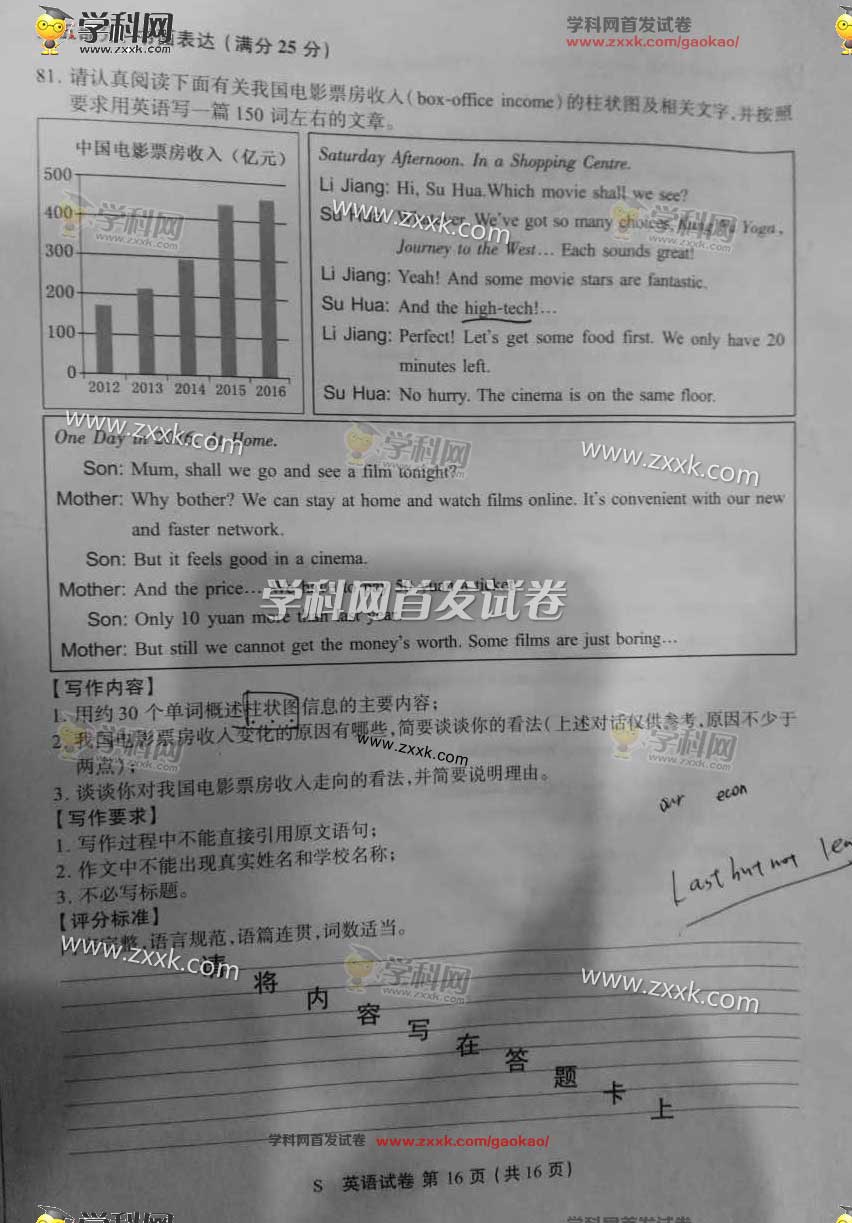 学科网
www.zxxk.com
学科网首发试卷
www.zxxk.com/gaokao/
学科网
www.zxxk.com
表达（满分 25 分）
81. 请认真阅读下面有关我国电影票房收入（box-office income）的柱状图及相关文字,并按照
要求用英语写一篇 150 词左右的文章。
中国电影票房收入（亿元）
500
400
300
200
100
0
2012 2013 2014 2015 2016
Saturday Afternoon. In a Shopping Centre.
Li Jiang: Hi, Su Hua.Which movie shall we see?
Su Hua: We've got so many choices, Kung Fu Yoga,
Journey to the West… Each sounds great!
Li Jiang: Yeah! And some movie stars are fantastic.
Su Hua: And the high-tech!…
Li Jiang: Perfect! Let's get some food first. We only have 20
minutes left.
Su Hua: No hurry. The cinema is on the same floor.
学科网
www.zxxk.com
www.zxxk.com
学科网
www.zxxk.com
学科网
www.zxxk.com
www.zxxk.com
One Day in 2016. At Home.
Son: Mum, shall we go and see a film tonight?
Mother: Why bother? We can stay at home and watch films online. It's convenient with our new
and faster network.
Son: But it feels good in a cinema.
Mother: And the price…
Son: Only 10 yuan more than last year.
Mother: But still we cannot get the money's worth. Some films are just boring…
学科网首发试卷
【写作内容】
1. 用约 30 个单词概述柱状图信息的主要内容；
2. 我国电影票房收入变化的原因有哪些,简要谈谈你的看法（上述对话仅供参考,原因不少于
两点）；
3. 谈谈你对我国电影票房收入走向的看法,并简要说明理由。
【写作要求】
1. 写作过程中不能直接引用原文语句；
2. 作文中不能出现真实姓名和学校名称；
3. 不必写标题。
【评分标准】
完整,语言规范,语篇连贯,词数适当。
www.zxxk.com
our econ
Last but not
www.zxxk.com
学科网
www.zxxk.com
www.zxxk.com
请将内容写在答题卡上
学科网首发试卷 www.zxxk.com/gaokao/
S 英语试卷 第 16 页（共 16 页）